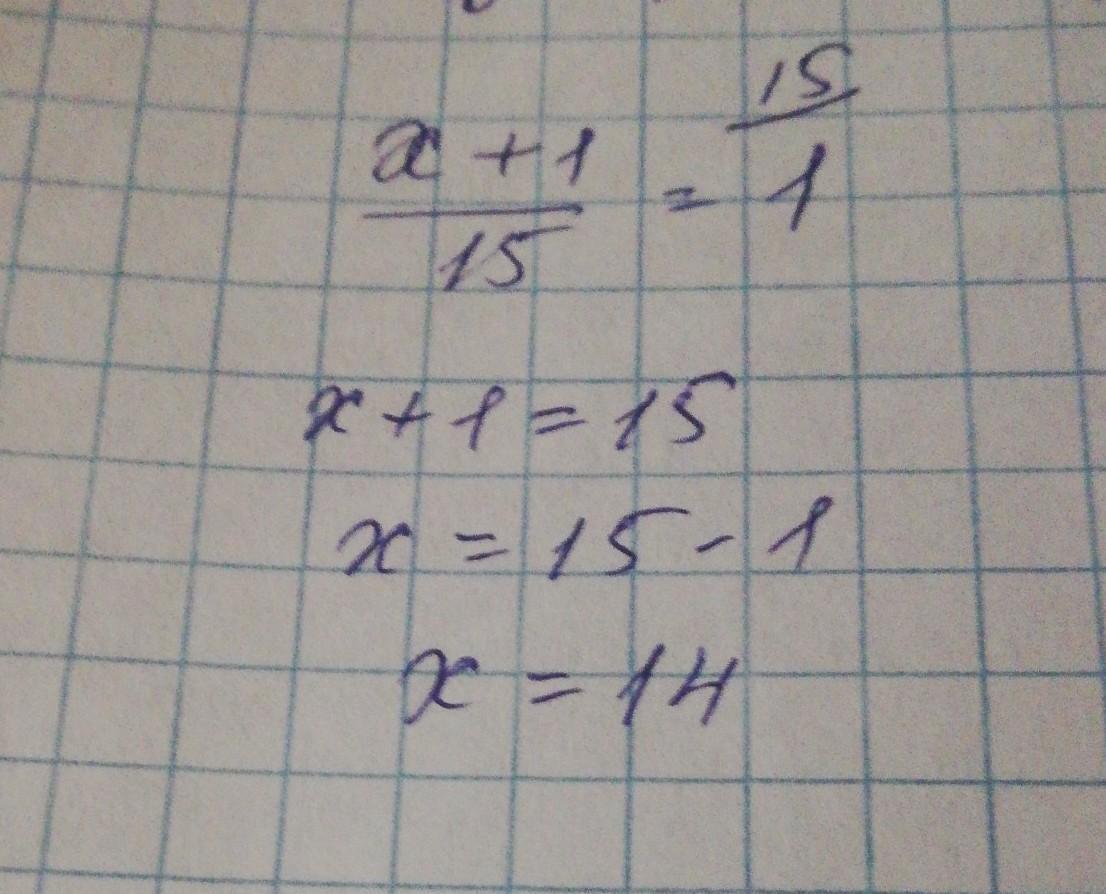 15
x + 1 = 1
15
x + 1 = 15
x = 15 - 1
x = 14